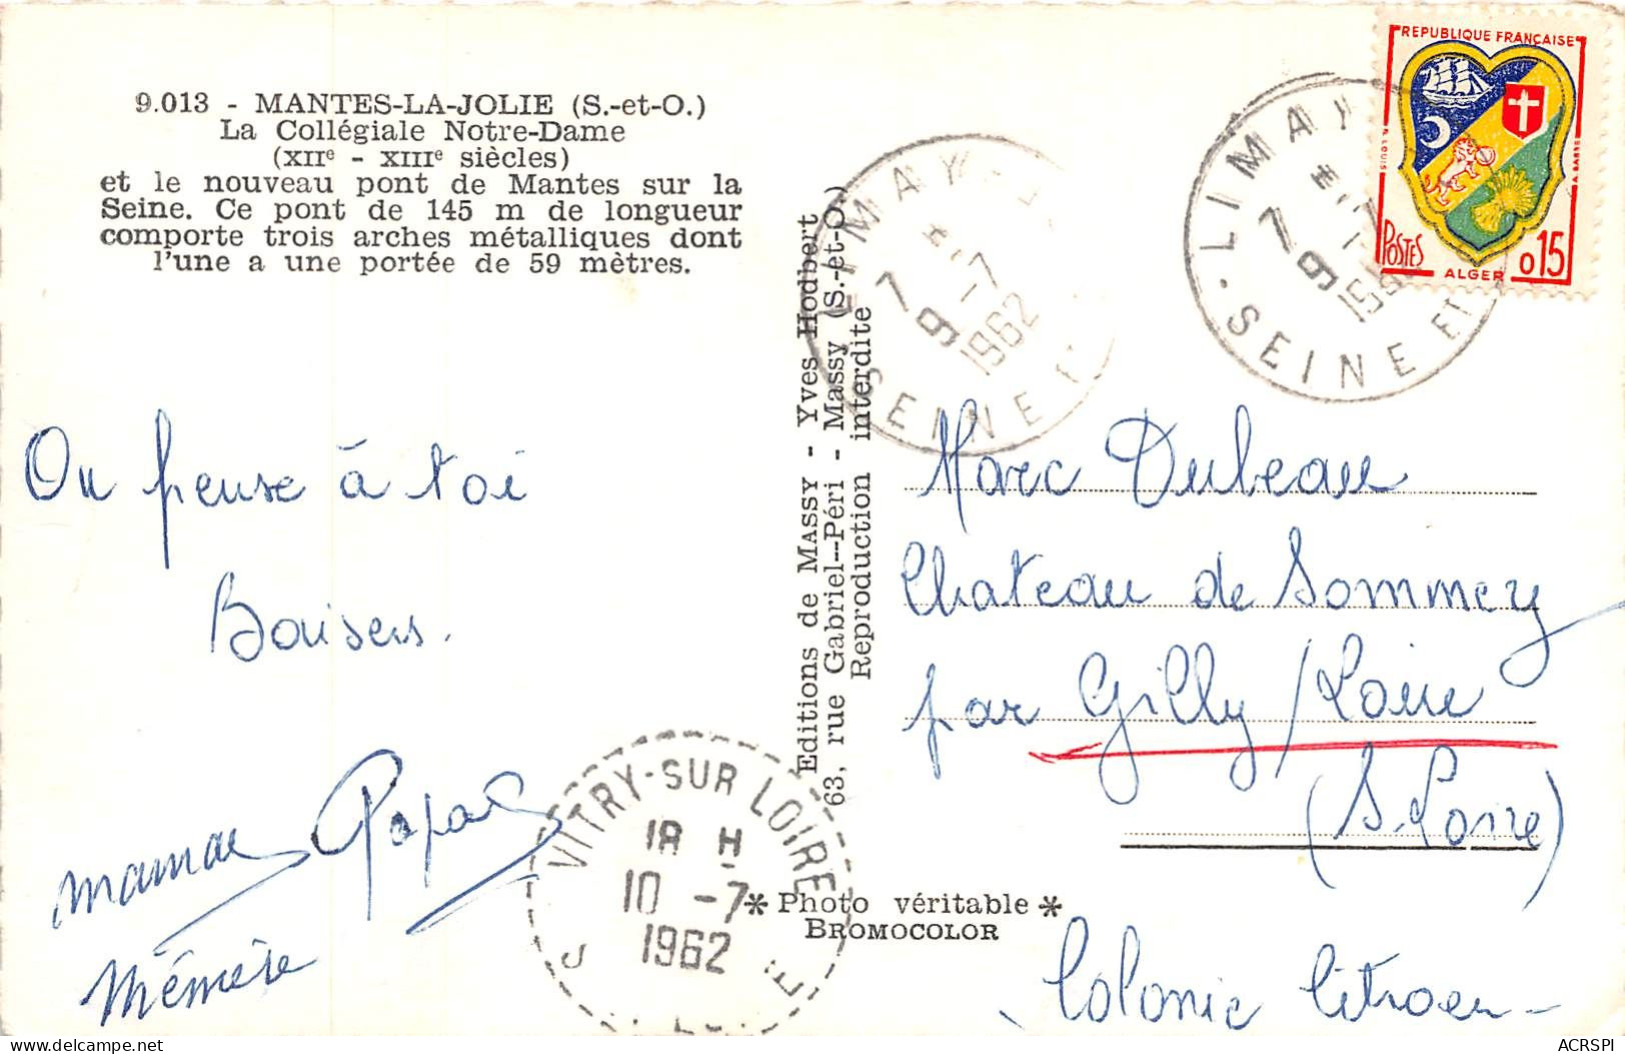 9.013 - MANTES-LA-JOLIE (S.-et-O.)
La Collégiale Notre-Dame
(XIIe - XIIIe siècles)
et le nouveau pont de Mantes sur la
Seine. Ce pont de 145 m de longueur
comporte trois arches métalliques dont
l'une a une portée de 59 mètres.
On pense à toi
Baisers.
maman Papa
Mémère
Editions de MASSY - Yves Hodbert
63, rue Gabriel-Péri - Massy (S.-et-O)
Reproduction interdite
* Photo véritable *
BROMOCOLOR
VITRY-SUR LOIRE
18 H
10 -7
1962
LIMAY
-7
1962
SEINE
LIMAY
SEINE ET
REPUBLIQUE FRANÇAISE
POSTES
ALGER
0.15
Marc Dubeau
Chateau de Sommery
par Gilly / Loire
(S. Loire)
Colonie Citroen -
ACRSPI